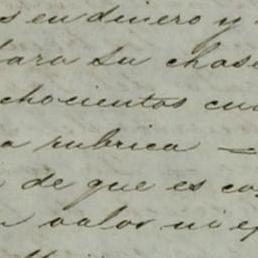 s en dinero y
para su chas
chocientos cu
a rubrica
de que es co
valor ni ex